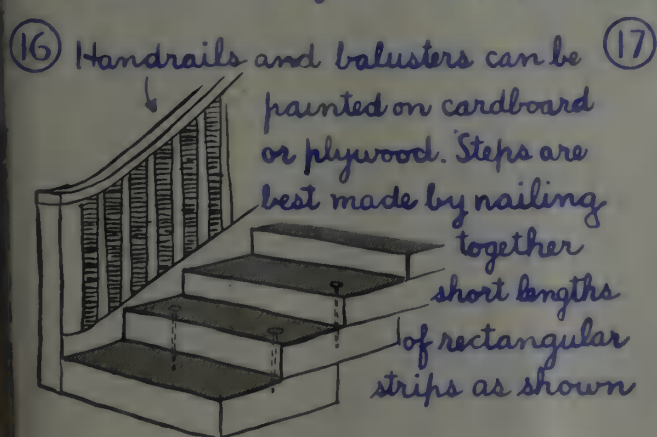 16 Handrails and balusters can be 17
painted on cardboard
or plywood. Steps are
best made by nailing
together
short lengths
of rectangular
strips as shown